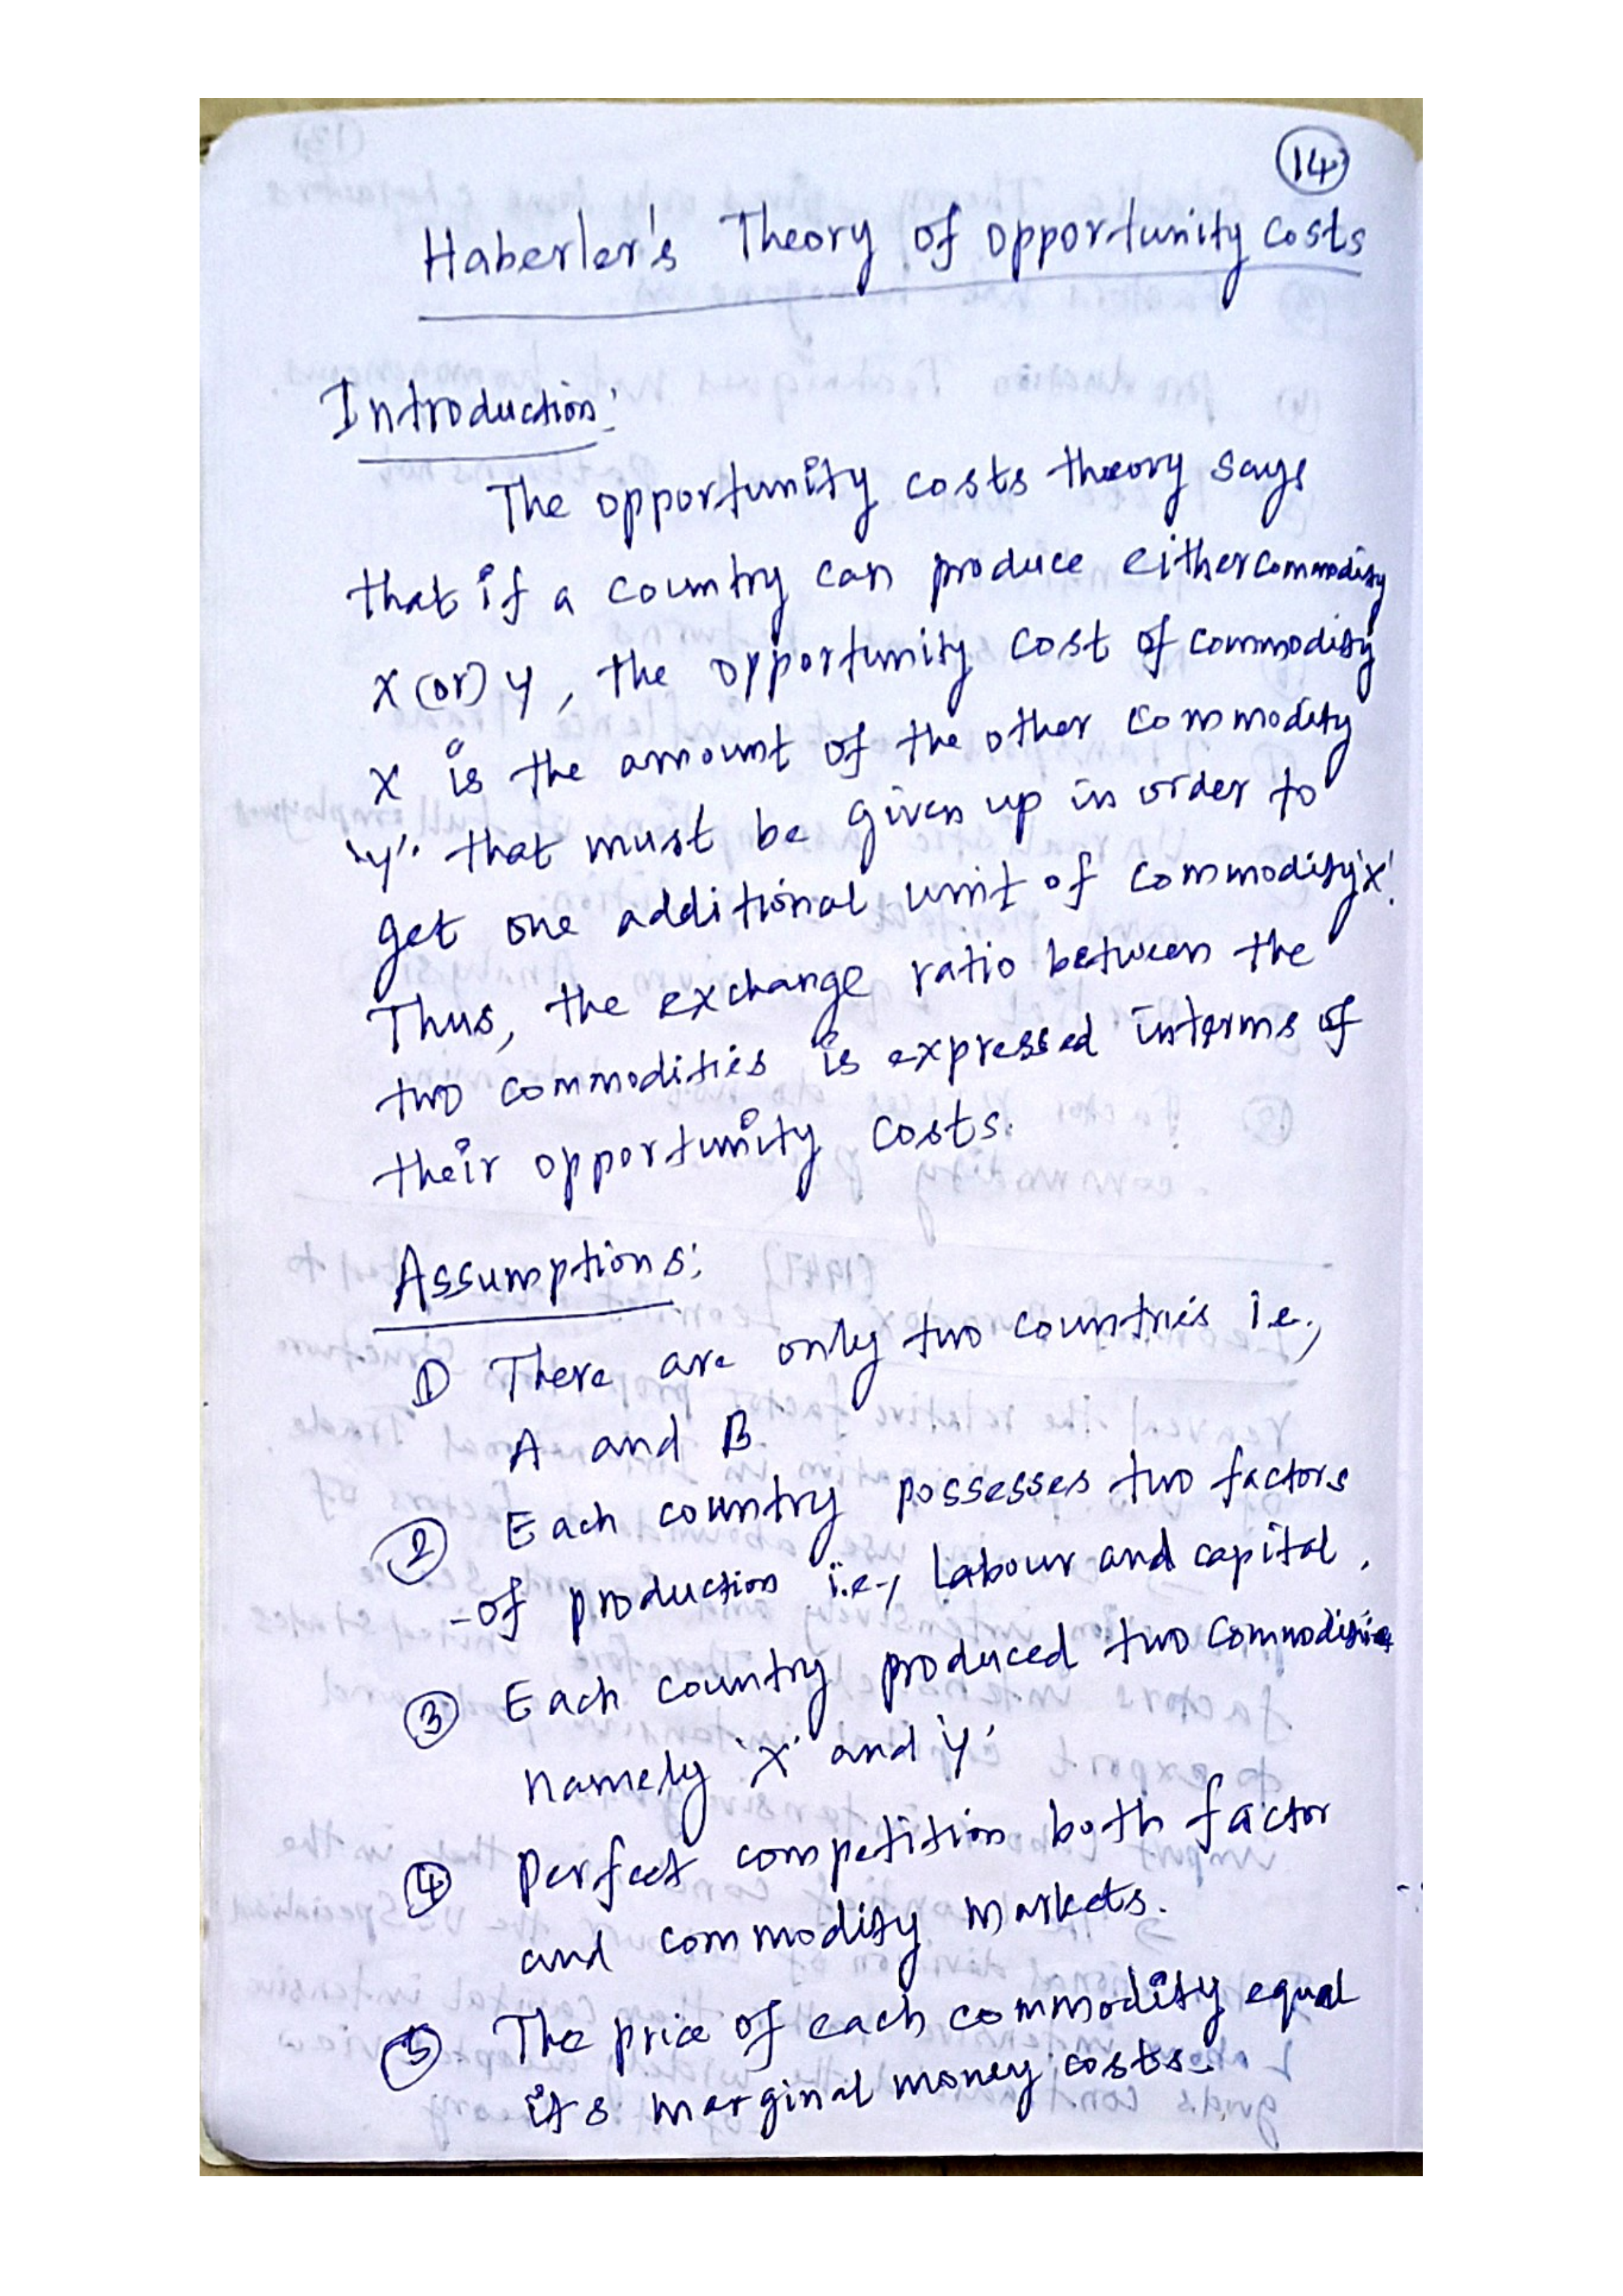 14
Haberler's Theory of opportunity costs
Introduction:
The opportunity costs theory says
that if a country can produce either commodity
X (or) Y, the opportunity cost of commodity
X is the amount of the other commodity
'Y'. that must be given up in order to
get one additional unit of commodity 'X'.
Thus, the exchange ratio between the
two commodities is expressed interms of
their opportunity costs.
Assumptions:
① There are only two countries i.e.,
A and B
② Each country possesses two factors
-of production i.e., Labour and capital.
③ Each country produced two commodities
namely 'X' and 'Y'
④ Perfect competition both factor
and commodity markets.
⑤ The price of each commodity equal
its marginal money costs.